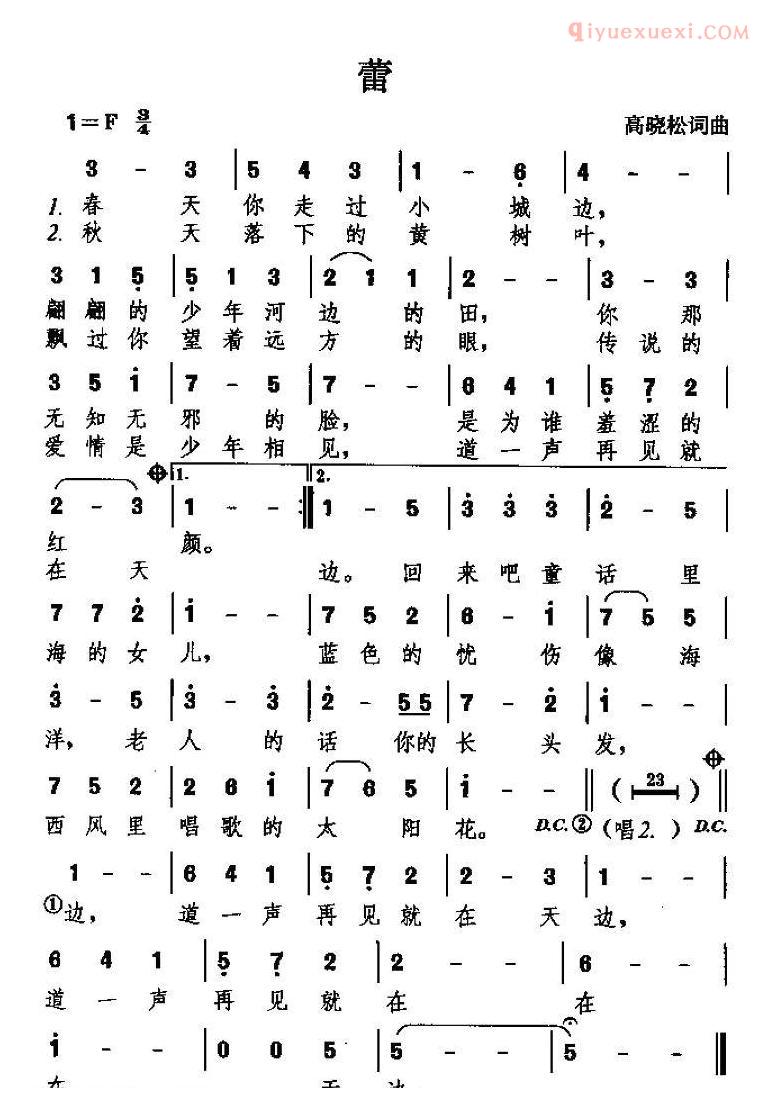 qiyuexuexi.com
蕾
1=F 3/4
高晓松词曲
3 - 3 | 5 4 3 | 1 - 6̣ | 4 - - |
1. 春 天 你 走 过 小 城 边,
2. 秋 天 落 下 的 黄 树 叶,
3 1 5̣ | 5̣ 1 3 | 2 1 1 | 2 - - | 3 - 3 |
翩 翩 的 少 年 河 边 的 田, 你 那
飘 过 你 望 着 远 方 的 眼, 传 说 的
3 5 i | 7 - 5 | 7 - - | 6 4 1 | 5̣ 7̣ 2 |
无 知 无 邪 的 脸, 是 为 谁 羞 涩 的
爱 情 是 少 年 相 见, 道 一 声 再 见 就
1. 2.
2 - 3 | 1 - - :‖ 1 - 5 | 3̇ 3̇ 3̇ | 2̇ - 5 |
红 颜。
在 天 边。 回 来 吧 童 话 里
7 7 2̇ | i - - | 7 5 2 | 6 - i | 7 5 5 |
海 的 女 儿, 蓝 色 的 忧 伤 像 海
3̇ - 5 | 3̇ - 3̇ | 2̇ - 5 5 | 7 - 2̇ | i - - |
洋, 老 人 的 话 你 的 长 头 发,
7 5 2 | 2 6 i | 7 6 5 | i - - ‖ ( 23 ) ‖
西 风 里 唱 歌 的 太 阳 花。 D.C. ② (唱2. ) D.C.
1 - - | 6 4 1 | 5̣ 7̣ 2 | 2 - 3 | 1 - - |
① 边, 道 一 声 再 见 就 在 天 边,
6 4 1 | 5̣ 7̣ 2 | 2 - - | 6 - - |
道 一 声 再 见 就 在 在
i - - | 0 0 5 | 5 - - | 5 - - ‖